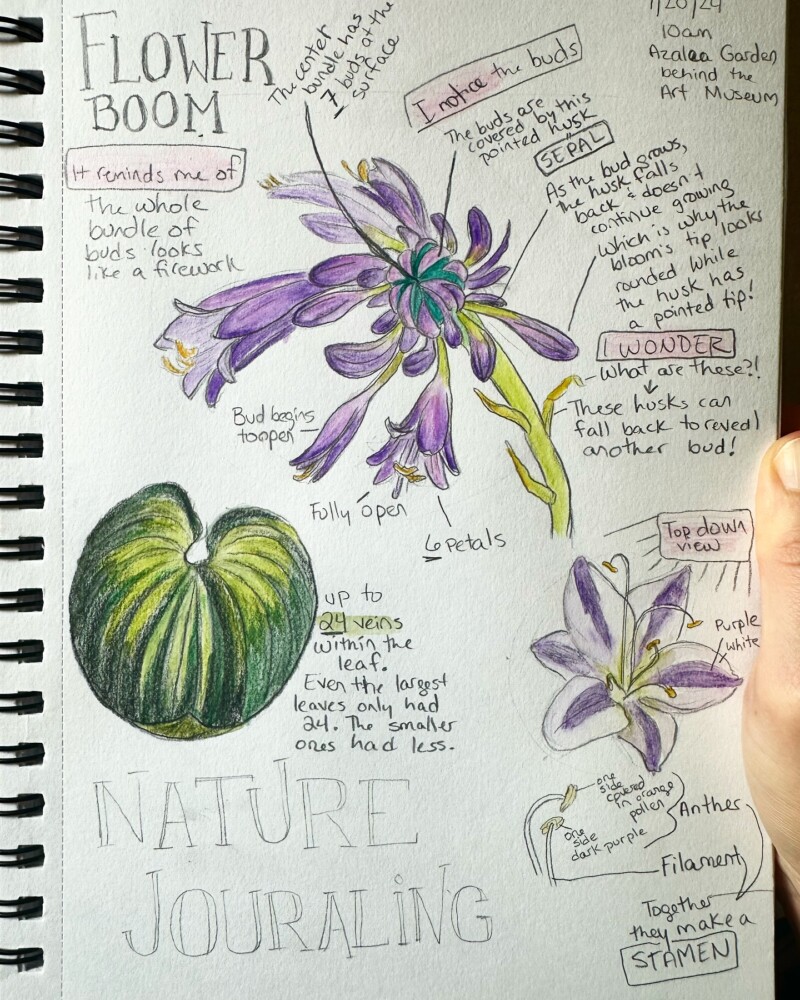 FLOWER
BOOM
The center
bundle has
7 buds at the
surface
I notice the buds
The buds are
covered by this
pointed husk
SEPAL
As the bud grows,
the husk falls
back & doesn't
continue growing
which is why the
bloom's tip looks
rounded while
the husk has
a pointed tip!
7/20/24
10am
Azalea Garden
behind the
Art Museum
It reminds me of
the whole
bundle of
buds looks
like a firework
I WONDER
What are these?!
These husks can
fall back to reveal
another bud!
Bud begins
to open
Fully open
6 petals
up to
24 veins
within the
leaf.
Even the largest
leaves only had
24. The smaller
ones had less.
Top down
view
Purple
white
one
side
covered
in orange
pollen
one
side
dark purple
Anther
Filament
Together
they make a
STAMEN
NATURE
JOURALING